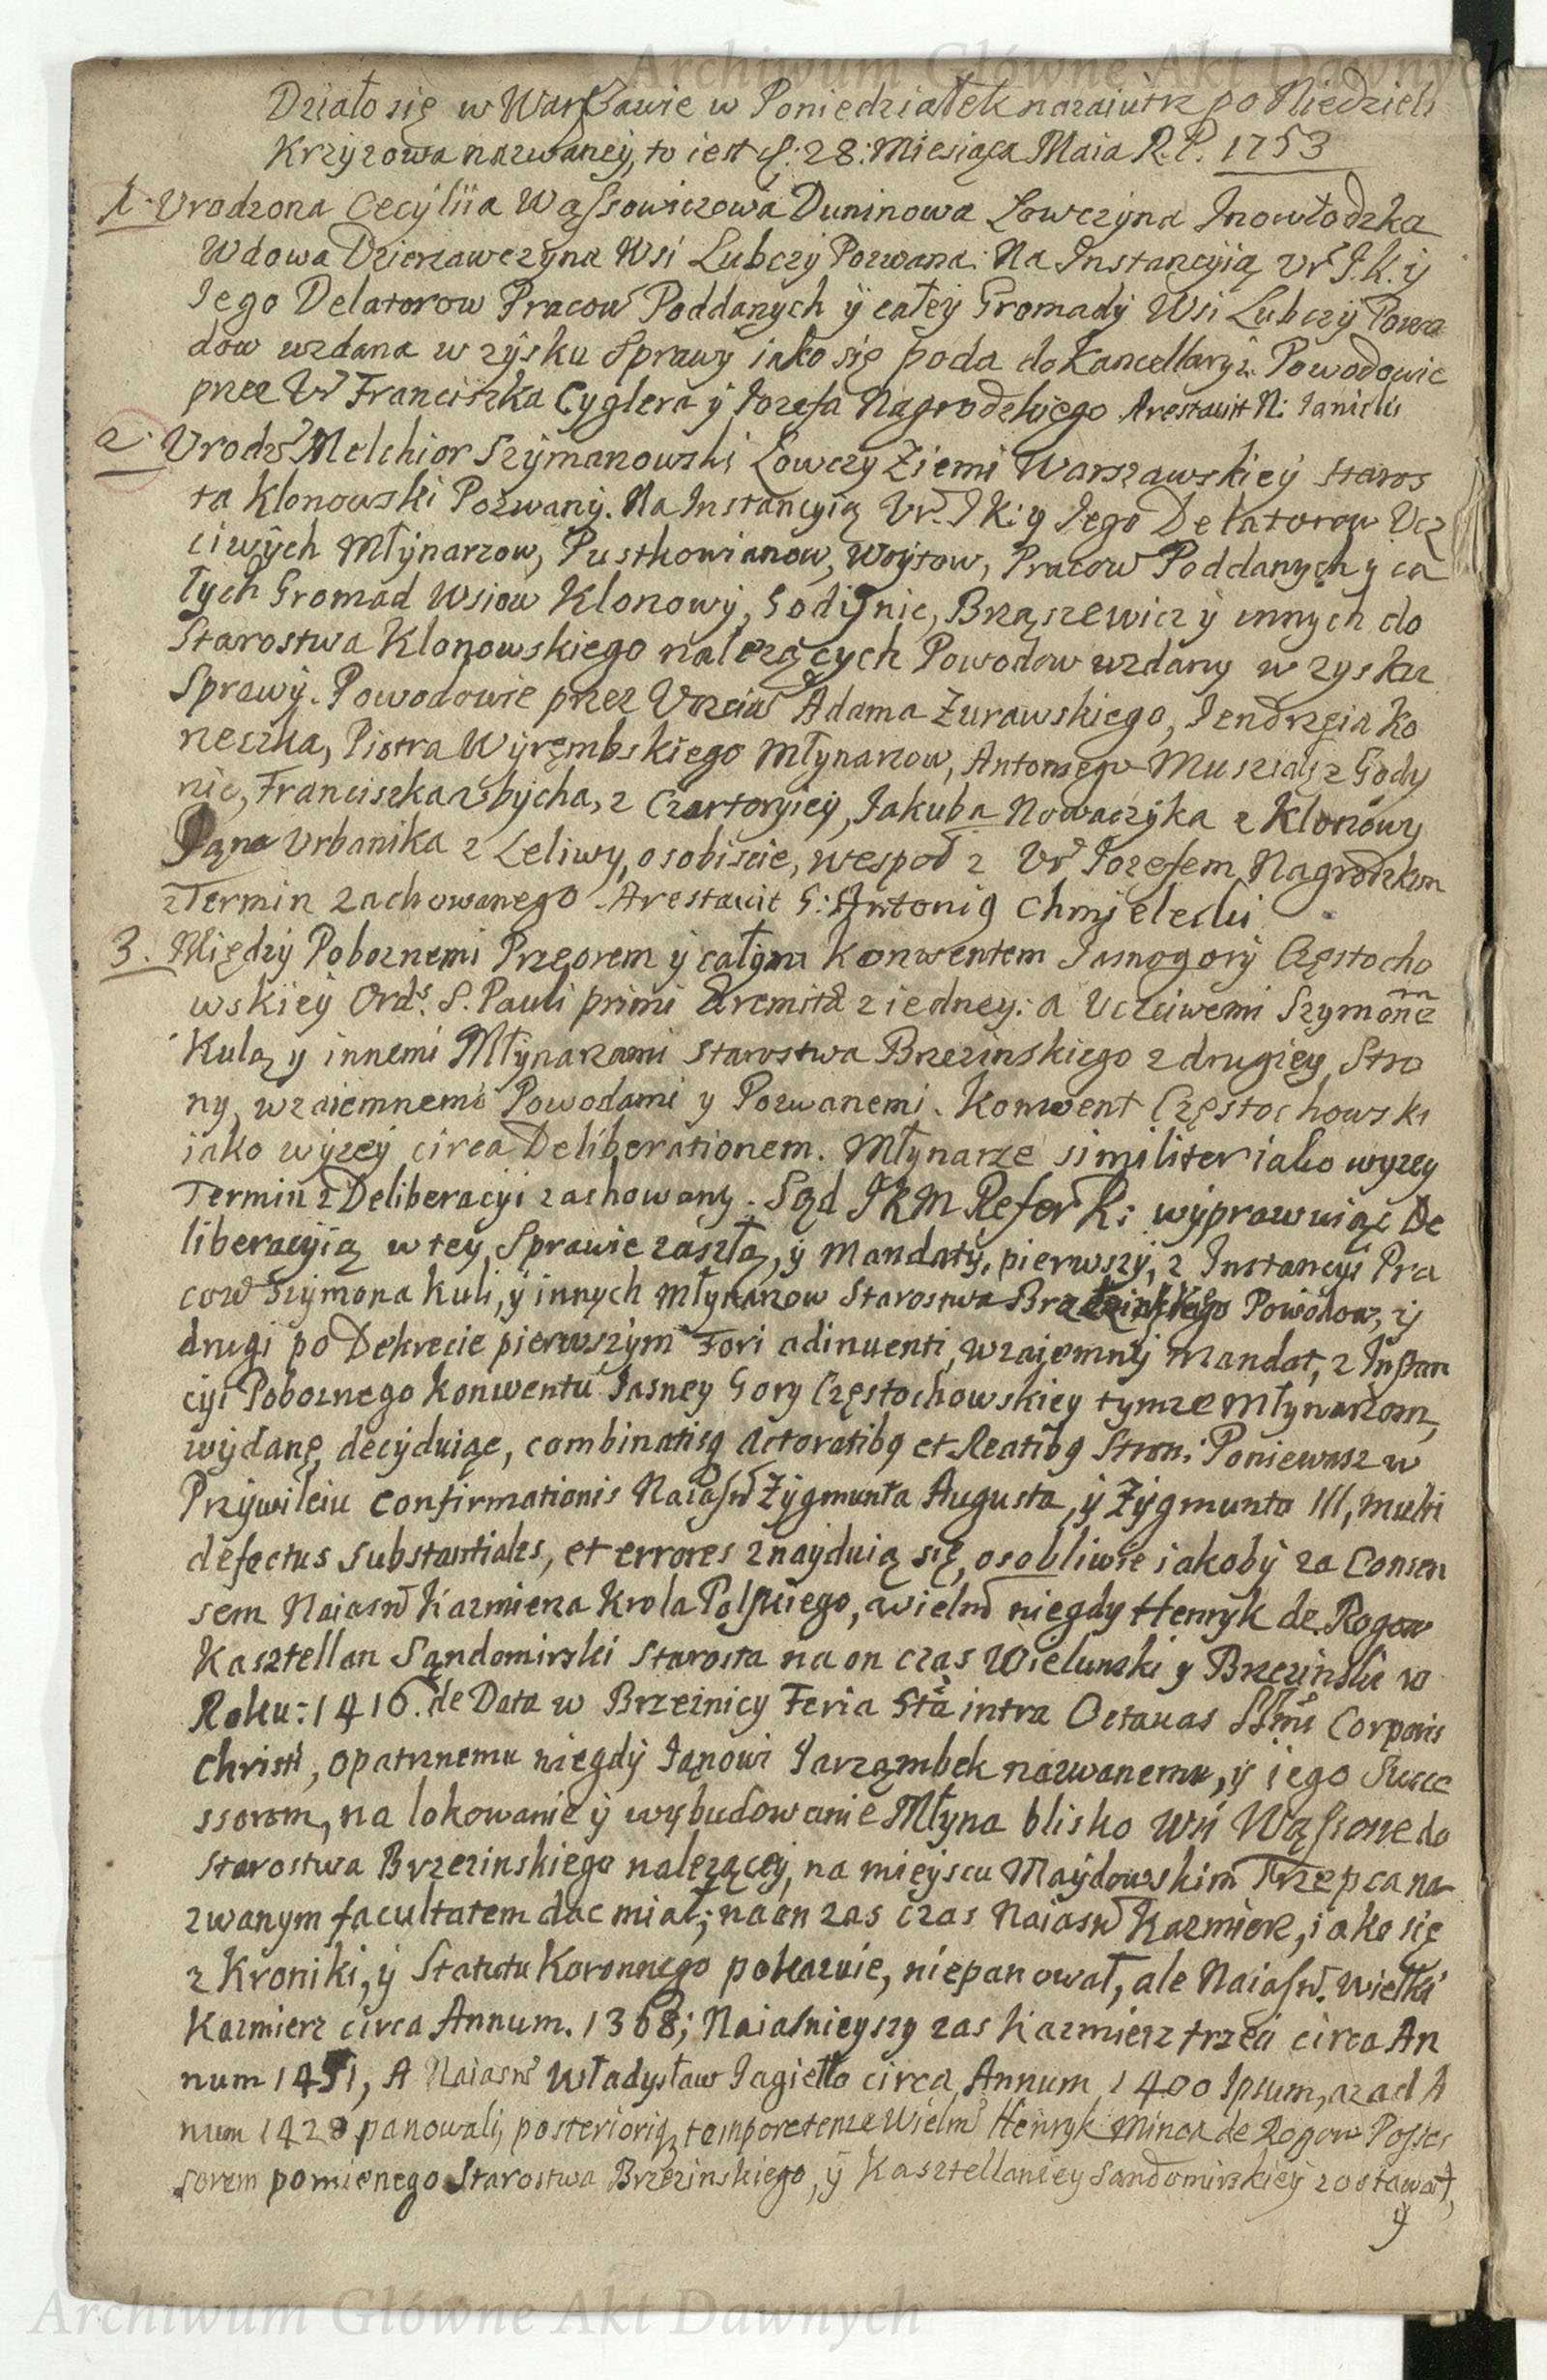 Archiwum Główne Akt Dawnych
Działo się w Warszawie w Poniedziałek nazaiutrz po Niedzieli
Krzyzowa nazwaney, to iest d: 28: Miesiąca Maia R. P. 1753
1. Vrodzona Cecyliia Wąssowiczowa Duninowa Łowczyna Inowłodzka
Wdowa Dzierzawczyna Wsi Lubczy Pozwana. Na Instancyią Vr. I. K. y
Iego Delatorow Pracow Poddanych y całey Gromady Wsi Lubczy Powo
dow wzdana w zysku Sprawy iako się poda do Kancellaryi. Powodowie
przez Vr Franciszka Cyglera y Iozefa Nagrodzkiego Arestavit N: Janicki
2. Vrodz Melchior Szymanowski Łowczy Ziemi Warszawskiey Staros
ta Klonowski Pozwany. Na Instancyią Vr. I K: y Iego Delatorow Vcz
ciwych Młynarzow, Pustkowianow, Woytow, Pracow Poddanych y ca
łych Gromad Wsiow Klonowy, Godynic, Brąszewicz y innych do
Starostwa Klonowskiego nalezących Powodow wzdany w zysku
Sprawy. Powodowie przez Vczciw Adama Zurawskiego, Jendrzeia Ko
neczka, Piotra Wyrembskiego Młynarzow, Antoniego Musziała z Gody
nic, Franciszka Zbycha, z Czartoryiey, Jakuba Nowaczyka z Klonowy
Jana Vrbanika z Leliwy, osobiscie, wespoł z Vr Iozefem Nagrodzkim
z Termin zachowanego. Arestavit G: Antonig Chmielecki
3. Między Poboznemi Przeorem y całym Konwentem Jasnogory Częstocho
wskiey Ords. S. Pauli primi Eremitæ z iedney: a Vczciwemi Szymone
Kulą y innemi Młynarzami Starostwa Brzezinskiego z drugiey Stro
ny, wzaiemnemi Powodami y Pozwanemi. Konwent Częstochowski
iako wyzey circa Deliberationem. Młynarze similiter iako wyzey
Termin z Deliberacyi zachowany. Sąd I K M Refer K: wyprawuiąc De
liberacyią w tey Sprawie zaszłą, y Mandaty, pierwszy, z Instancyi Pra
cow Szymona Kuli, y innych Młynarzow Starostwa Brzezinskiego Powodow, y
drugi po Dekrecie pierwszym Fori adinventi, wzaiemny Mandat, z Instan
cyi Poboznego Konwentu Jasney Gory Częstochowskiey tymze Młynarzom
wydane, decyduiąc, combinatisq Actoratibq et Reatibq Stron: Poniewasz w
Przywileiu confirmationis Naiasn Zygmunta Augusta, y Zygmunta III, multi
defectus substantiales, et errores znayduią się, osobliwie iakoby za Consen
sem Naiasn Kazmierza Krola Polskiego, Wielm niegdy Henryk de Rogow
Kasztellan Sandomirski Starosta na on czas Wielunski y Brzezinski w
Roku: 1410. de Data w Brzeznicy Feria 5ta intra Octavas SSmi Corporis
Christi, opatrznemu niegdy Janowi Jarząmbek nazwanemu, y iego Succe
ssorom, na lokowanie y wybudowanie Młyna blisko Wsi Wąssosze do
Starostwa Brzezinskiego nalezącey, na mieyscu Maydowskim Trzepca na
zwanym facultatem dac miał; na on zas czas Naiasn Kazmierz, iako się
z Kroniki, y Statutu Koronnego pokazuie, niepanował, ale Naiasn. Wielki
Kazmierz circa Annum. 1368; Naiasnieyszy zas Kazmierz trzeci circa An
num 1451, A Naiasn Władysław Jagiełło circa Annum 1400 Ipsum, az ad A
num 1428 panowali, posteriorią tempore tenze Wielm Henryk Minor de Rogow Posses
sorem pomienego Starostwa Brzezinskiego, y Kasztellaniey Sandomirskiey zostawał,
y
Archiwum Główne Akt Dawnych